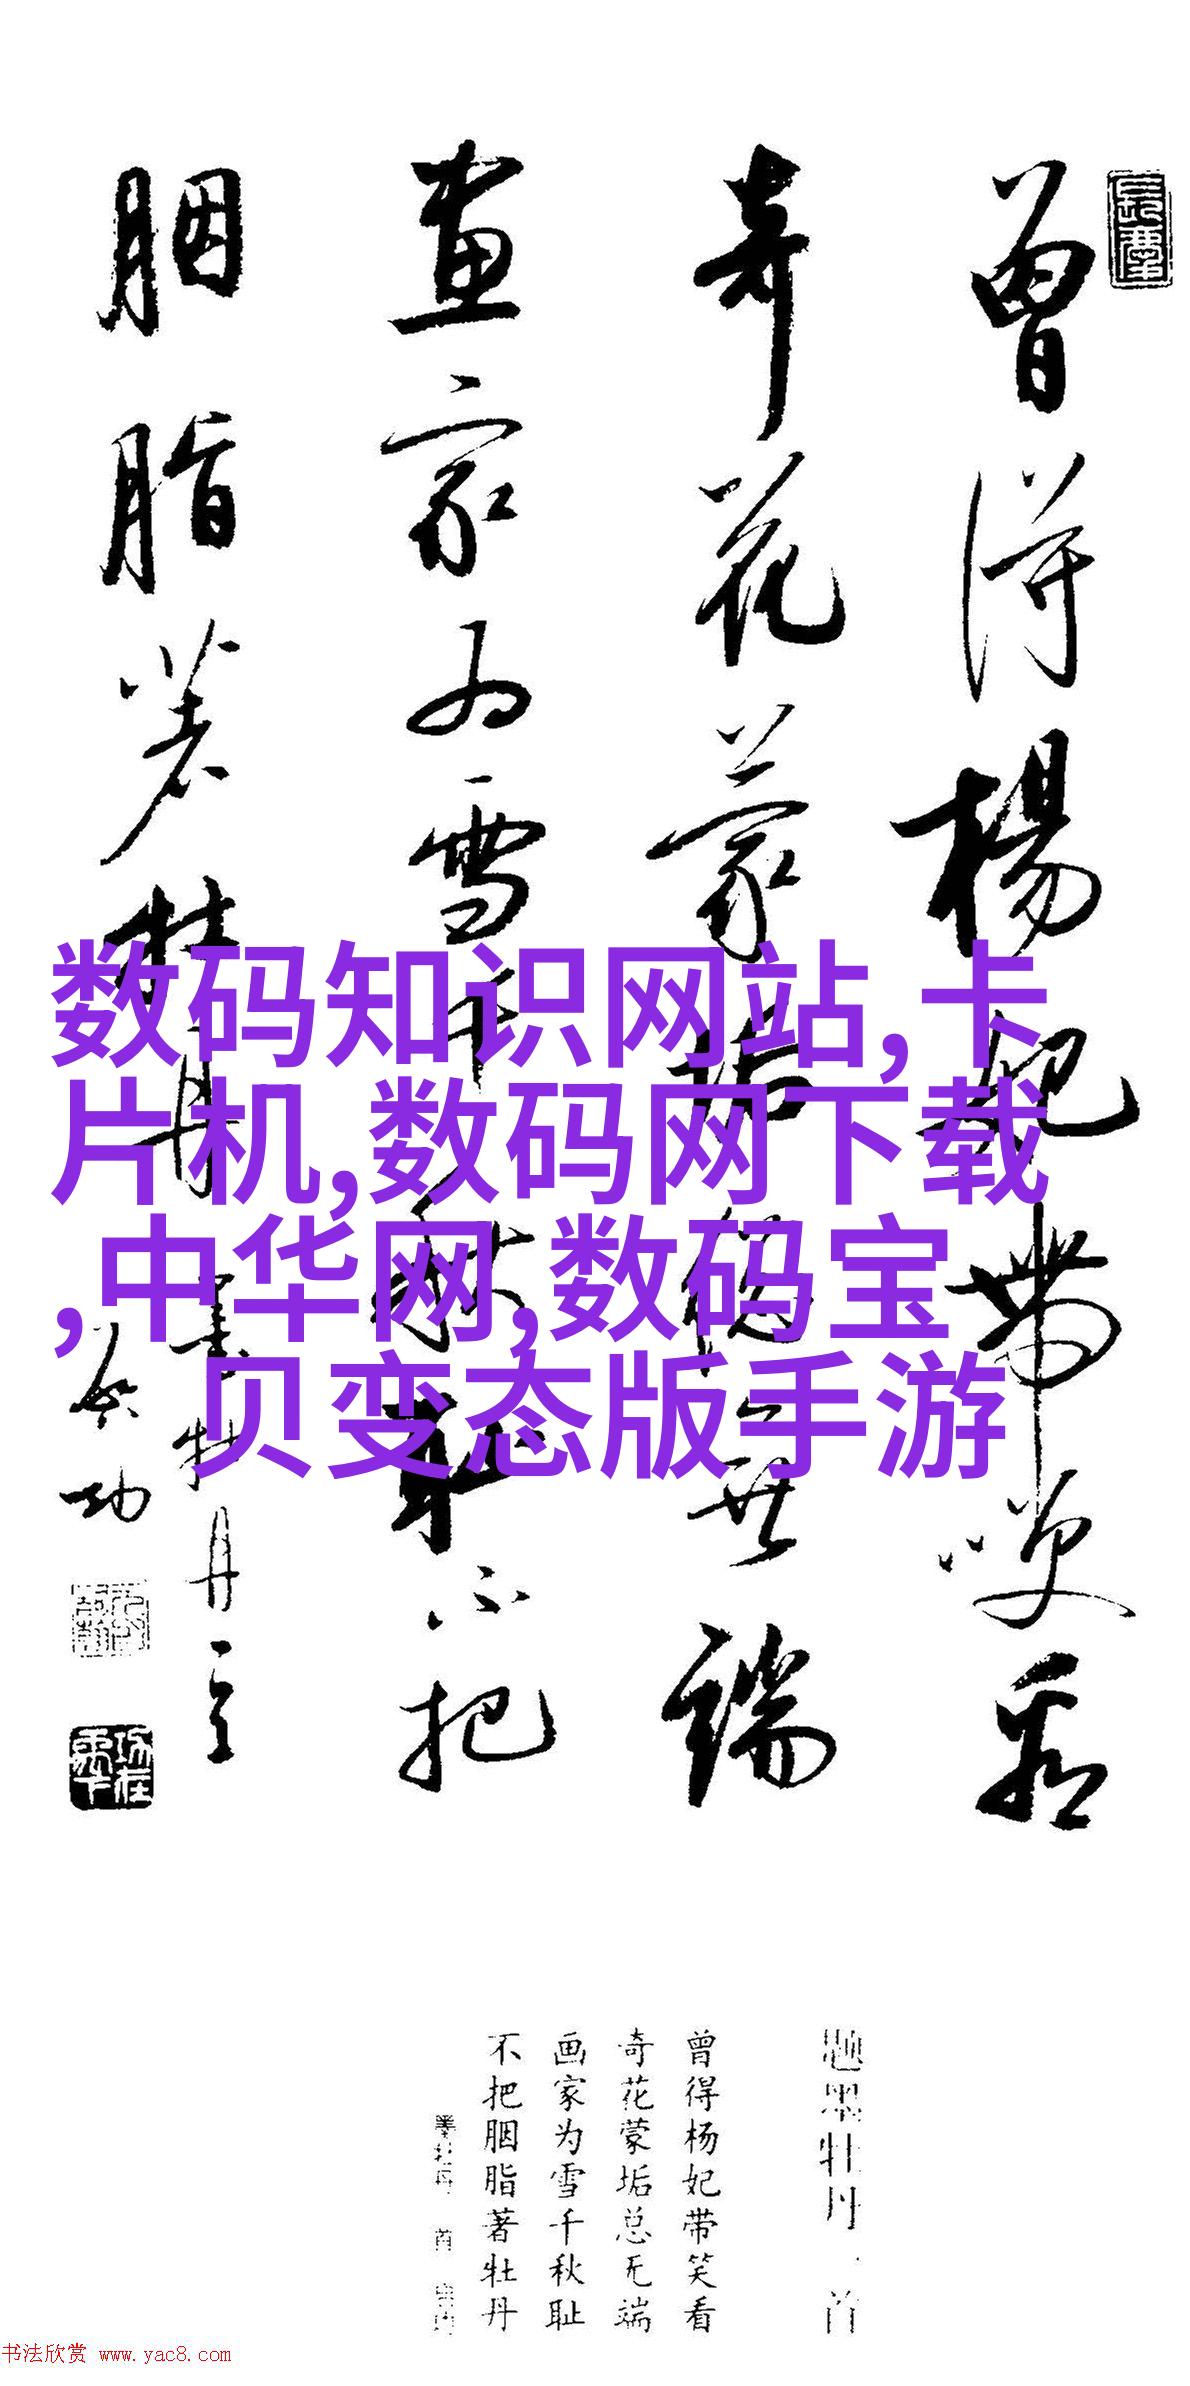 曾得楊妃帶笑看
奇花蒙垢總無端
畫家为雪千秋耻不把
胭脂著牡丹
墨牡丹一首
启功
数码知识网站,卡
片机,数码网下载
,中华网,数码宝
贝变态版手游
题墨牡丹一首
曾得杨妃带笑看
奇花蒙垢总无端
画家为雪千秋耻
不把胭脂著牡丹
书法欣赏 www.yac8.com